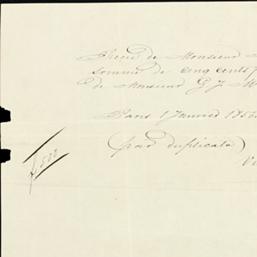 Reçu de Monsieur
somme de cinq cents f
de Monsieur G J M
Paris 1 Janvier 185
(par duplicata)
f 500